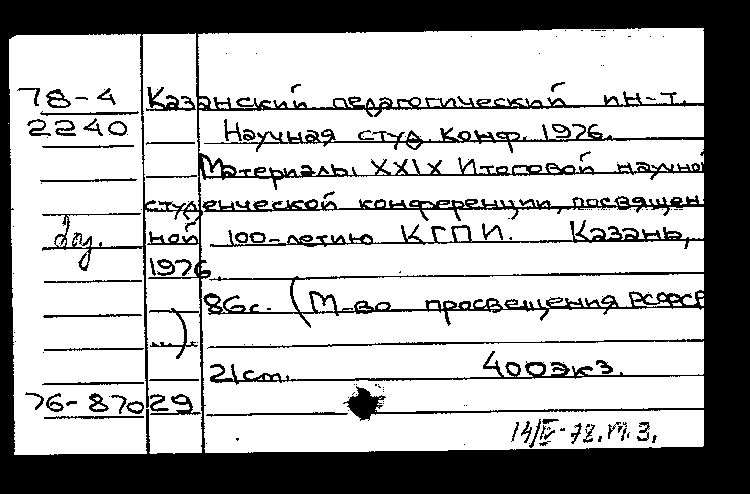 78-4 Казанский педагогический ин-т.
2240 Научная студ. конф. 1976.
Материалы XXIX Итоговой научной
студенческой конференции, посвящен-
ной 100-летию КГПИ. Казань,
1976.
86с. (М-во просвещения РСФСР
...).
21см. 400экз.
76-87029
14/IV-78. М.З.